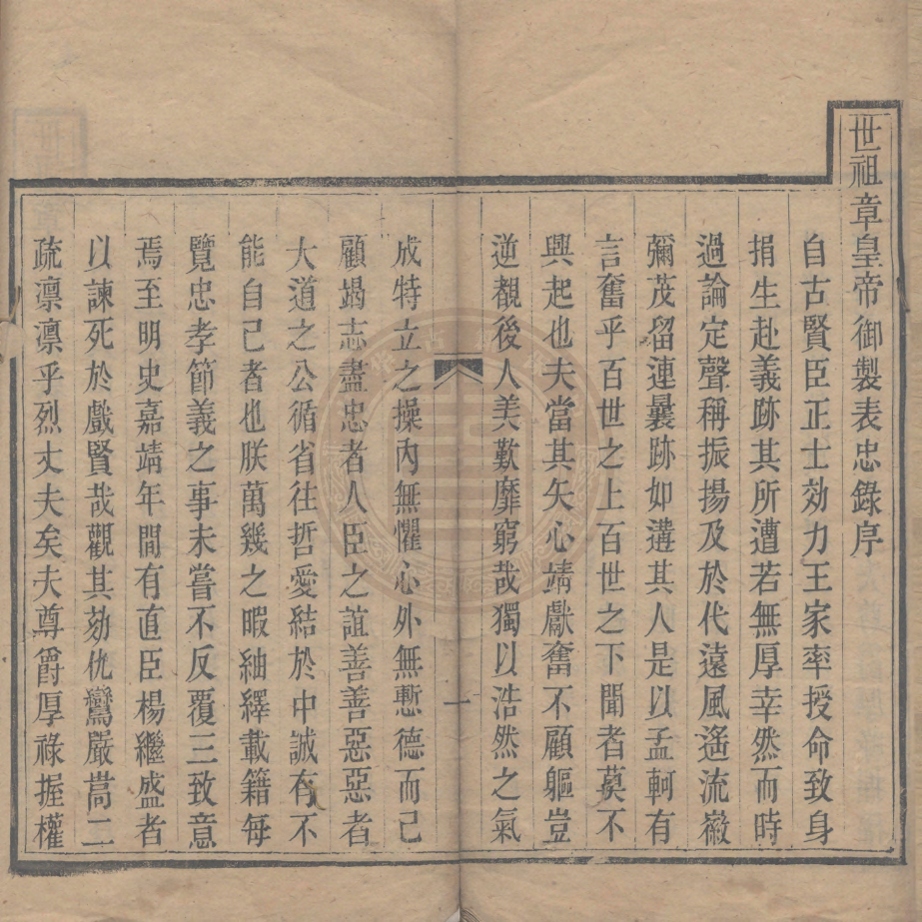 世祖章皇帝御製表忠錄序
自古賢臣正士効力王家率授命致身
捐生赴義跡其所遭若無厚幸然而時
過論定聲稱振揚及於代遠風遙流徽
彌茂留連曩跡如遘其人是以孟軻有
言奮乎百世之上百世之下聞者莫不
興起也夫當其矢心靖獻奮不顧軀豈
逆覩後人美歎靡窮哉獨以浩然之氣
一
成特立之操內無懼心外無慙德而已
顧竭志盡忠者人臣之誼善善惡惡者
大道之公循省往哲愛結於中誠有不
能自已者也朕萬幾之暇紬繹載籍每
覽忠孝節義之事未嘗不反覆三致意
焉至明史嘉靖年間有直臣楊繼盛者
以諫死於戲賢哉觀其劾仇鸞嚴嵩二
疏凛凛乎烈丈夫矣夫尊爵厚祿握權